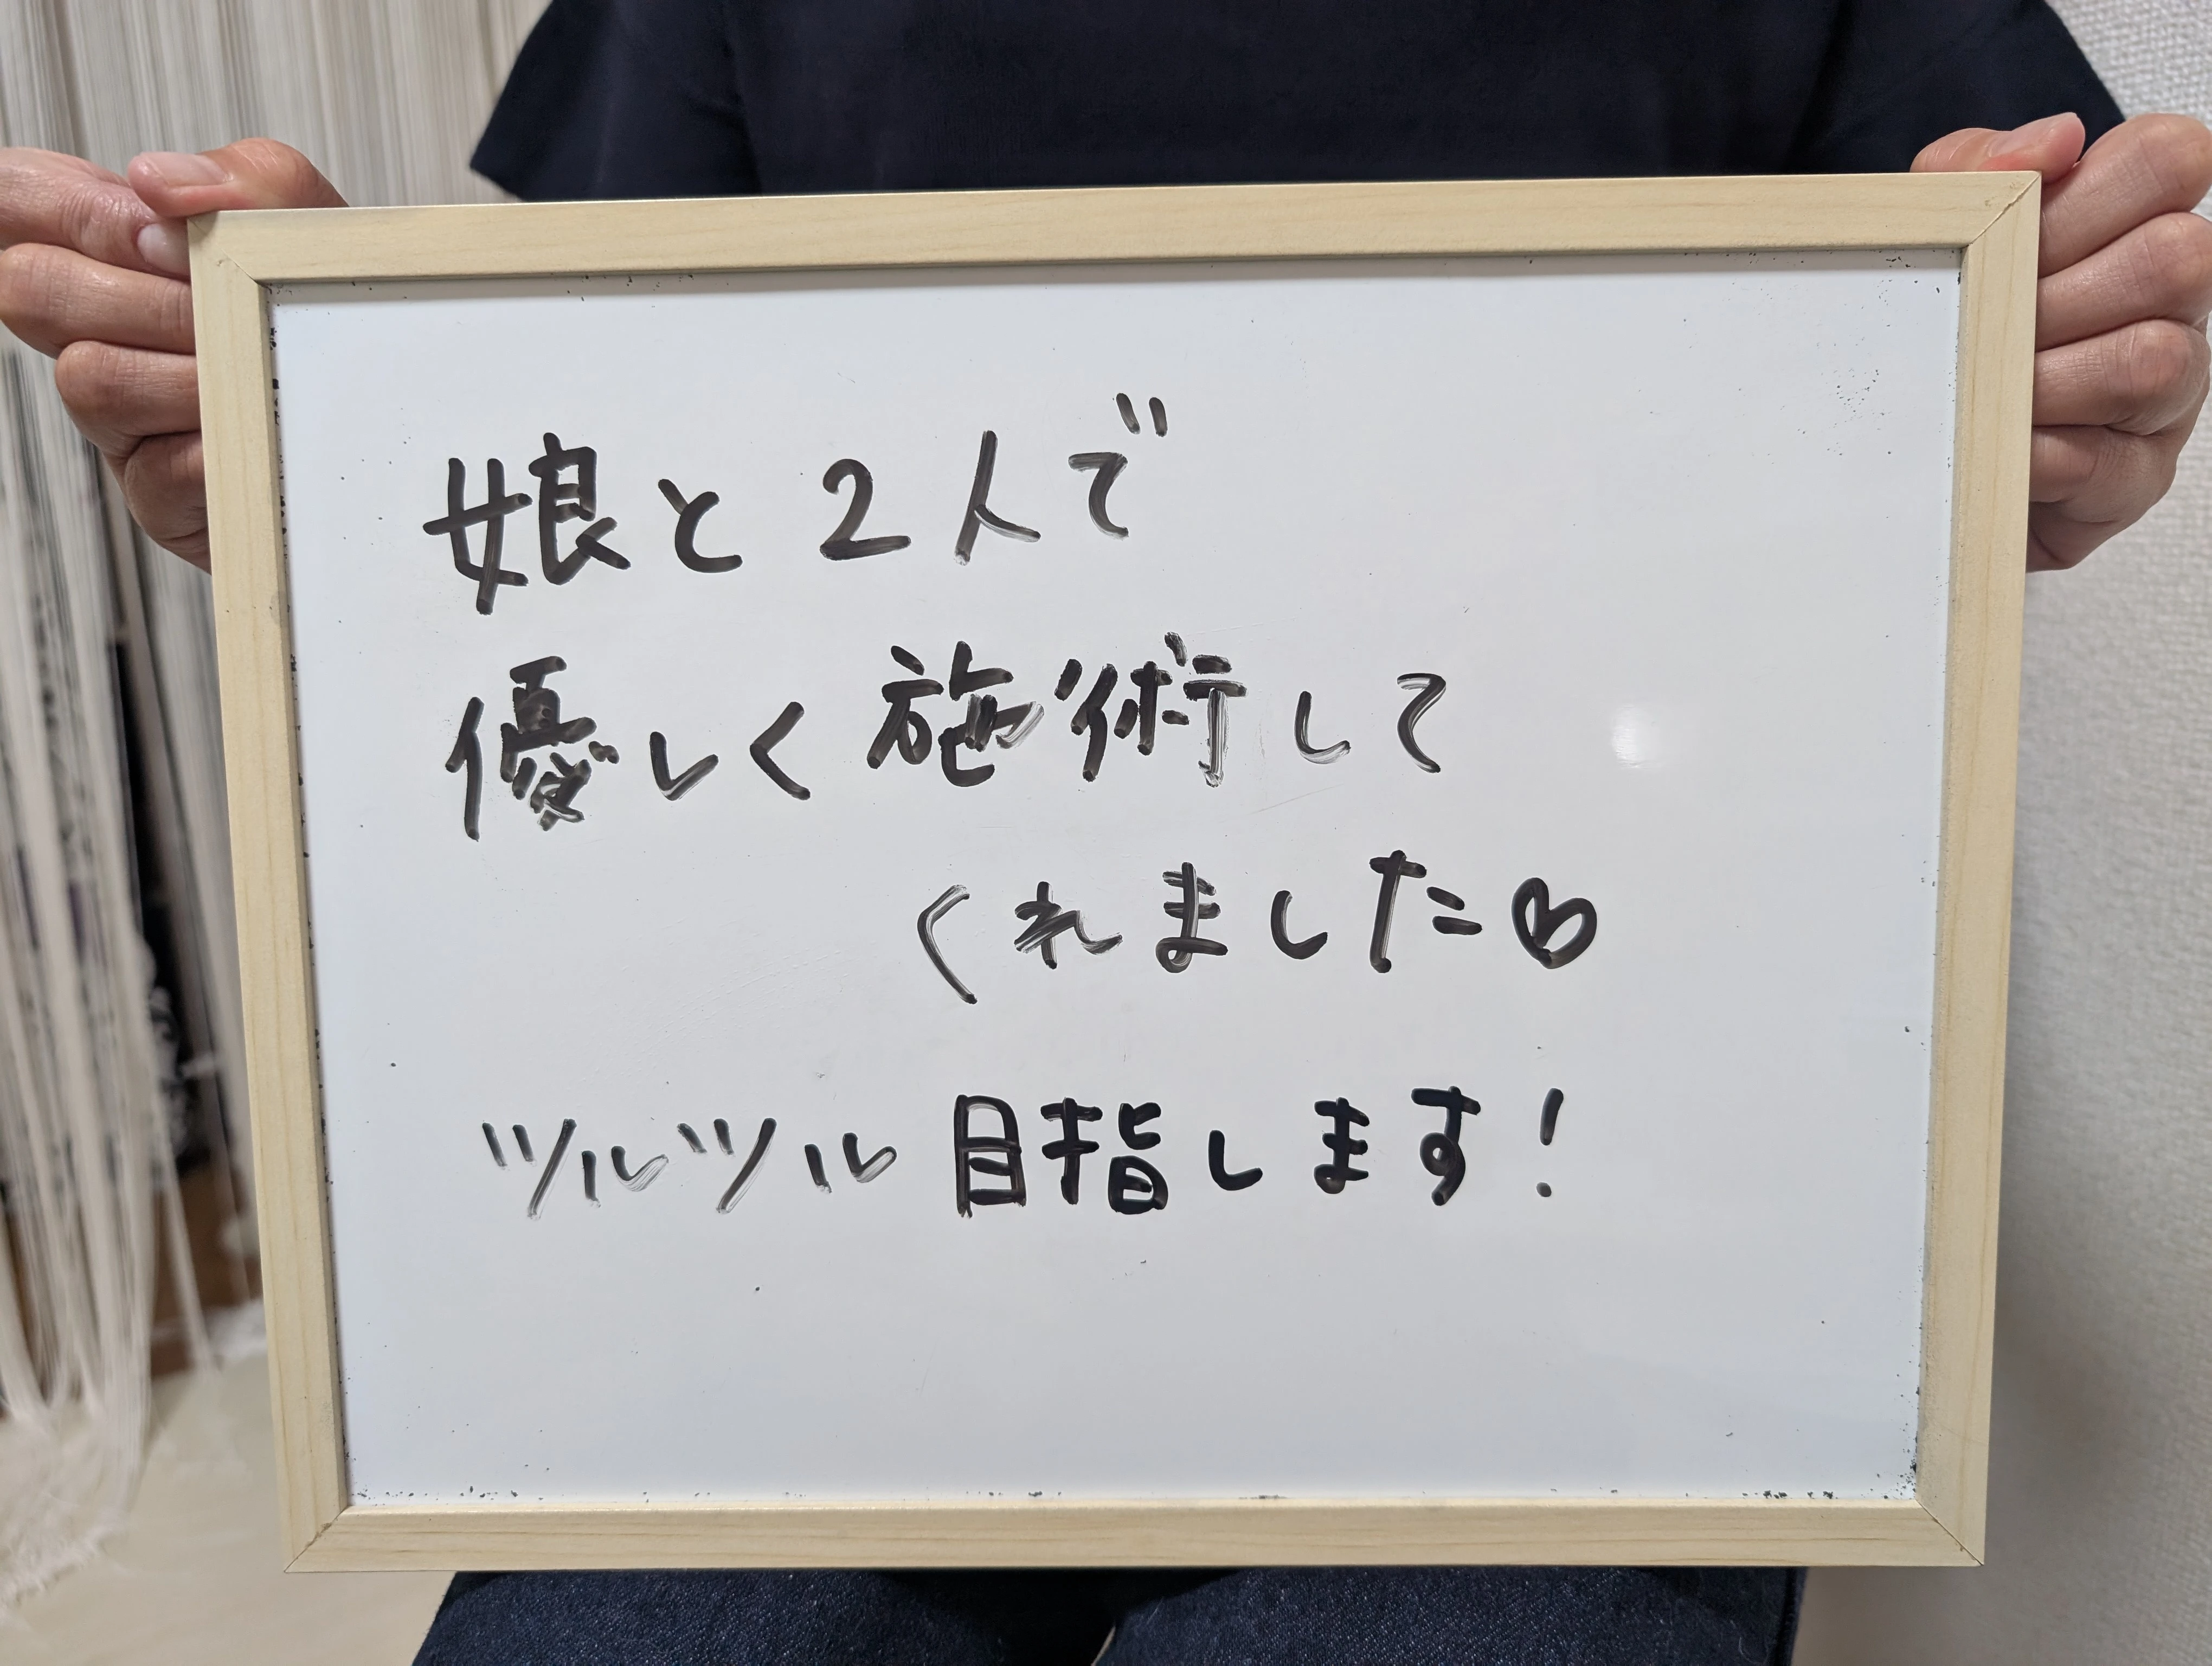 娘と2人で
優しく施術して
くれました♡
ツルツル目指します!